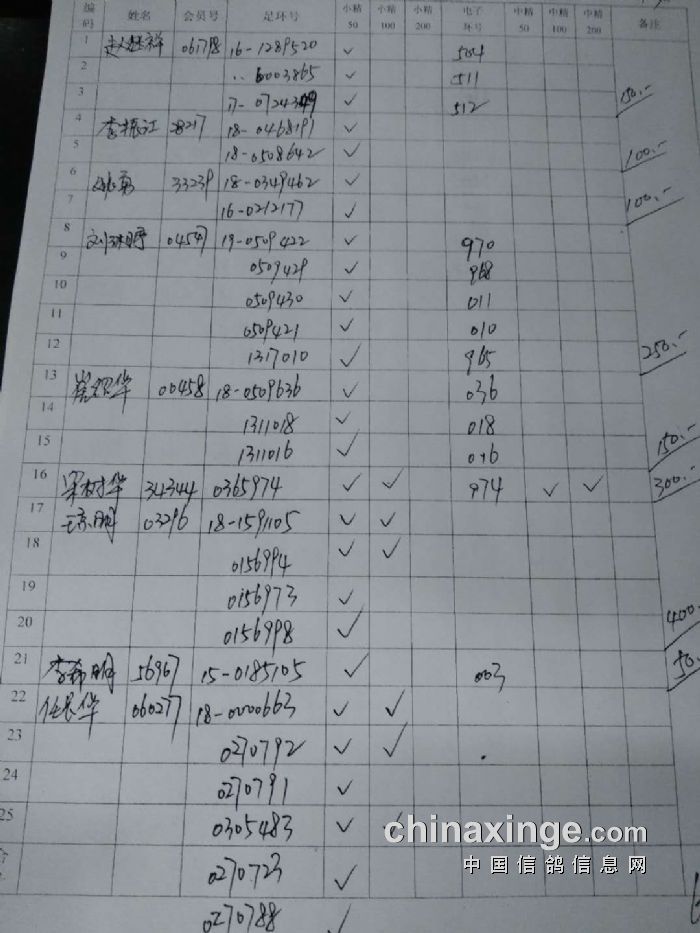 编码 姓名 会员号 足环号 小精50 小精100 小精200 电子环号 中精50 中精100 中精200 备注
1 06178 16-1289520 ✓ 504
2 .. 6003865 ✓ 511
3 17-0724349 ✓ 512 150.-
4 李振江 28217 18-0468191 ✓
5 18-0508642 ✓ 100.-
6 33239 18-0349462 ✓
7 16-0212177 ✓ 100.-
8 04547 19-0509422 ✓ 970
9 0509429 ✓ 968
10 0509430 ✓ 011
11 0509421 ✓ 010
12 1317010 ✓ 965 250.-
13 00458 18-0509636 ✓ 036
14 1311018 ✓ 018
15 1311016 ✓ 016 150.-
16 梁树华 34344 0365974 ✓ ✓ 974 ✓ ✓ 300.-
17 03296 18-1591105 ✓ ✓
18 0156994 ✓ ✓
19 0156973 ✓
20 0156998 ✓ 400.
21 李希明 56967 15-0185105 ✓ 003 50.-
22 任长华 060277 18-0000663 ✓ ✓
23 0270792 ✓ ✓
24 0270791 ✓
25 0305483 ✓ ✓
0270723 ✓
0270788 ✓
chinaxinge.com
中国信鸽信息网